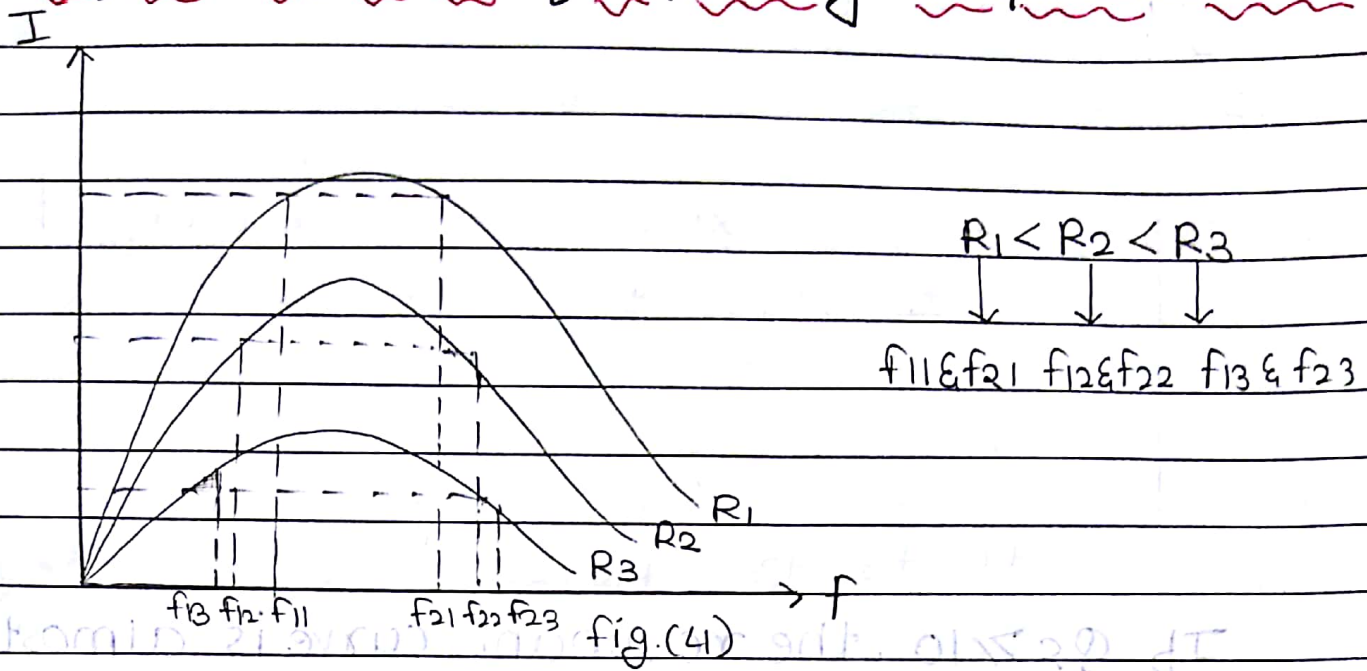 I
R1 < R2 < R3
f11 & f21 f12 & f22 f13 & f23
R1
R2
R3
f13 f12 f11 f21 f22 f23
f
fig.(4)